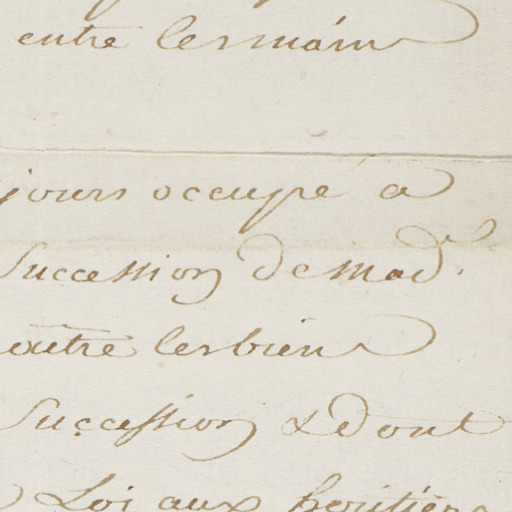 entre les mains
jours occupé a
Succession de Mad.e
outre les biens
Succession & dont
Loi aux heritiers